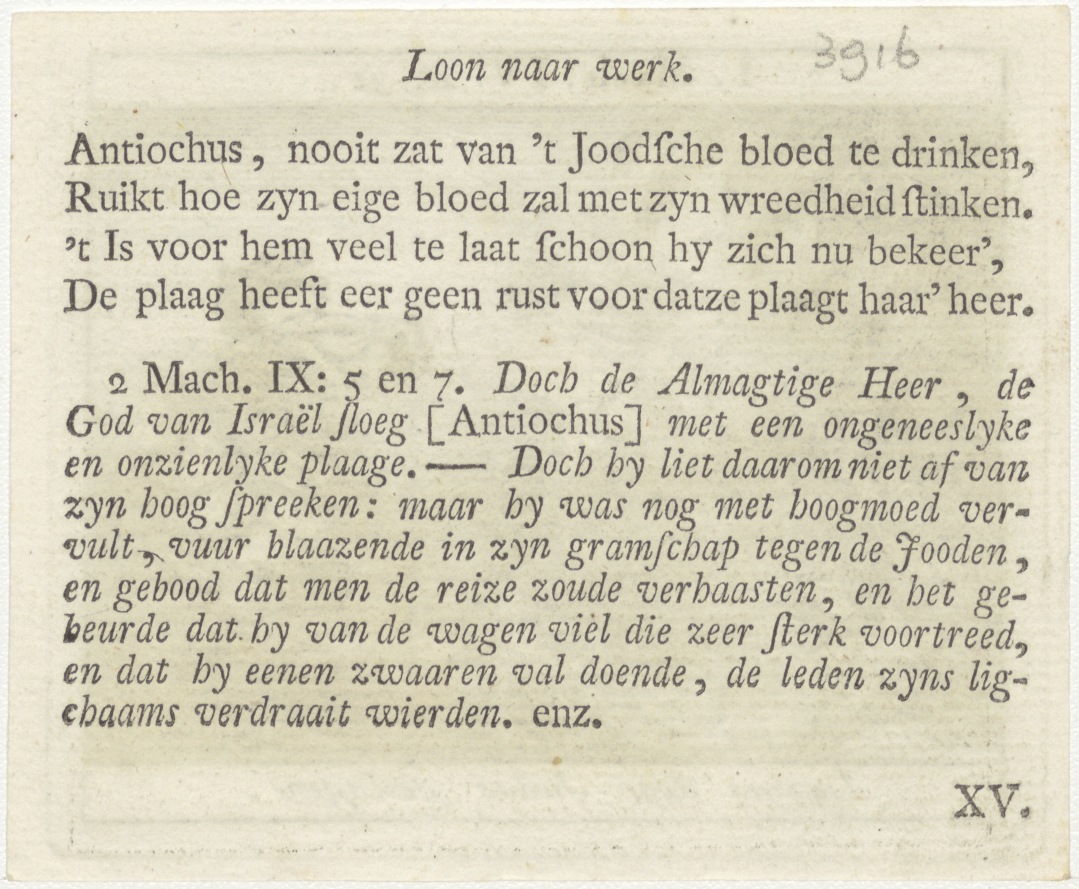 Loon naar werk.
3916
Antiochus, nooit zat van 't Joodſche bloed te drinken,
Ruikt hoe zyn eige bloed zal met zyn wreedheid ſtinken.
't Is voor hem veel te laat ſchoon hy zich nu bekeer',
De plaag heeft eer geen rust voor datze plaagt haar' heer.
2 Mach. IX: 5 en 7. Doch de Almagtige Heer, de
God van Israël ſloeg [Antiochus] met een ongeneeslyke
en onzienlyke plaage. — Doch hy liet daarom niet af van
zyn hoog ſpreeken: maar hy was nog met hoogmoed ver-
vult, vuur blaazende in zyn gramſchap tegen de Jooden,
en gebood dat men de reize zoude verhaasten, en het ge-
beurde dat hy van de wagen viel die zeer ſterk voortreed,
en dat hy eenen zwaaren val doende, de leden zyns lig-
chaams verdraait wierden. enz.
XV.